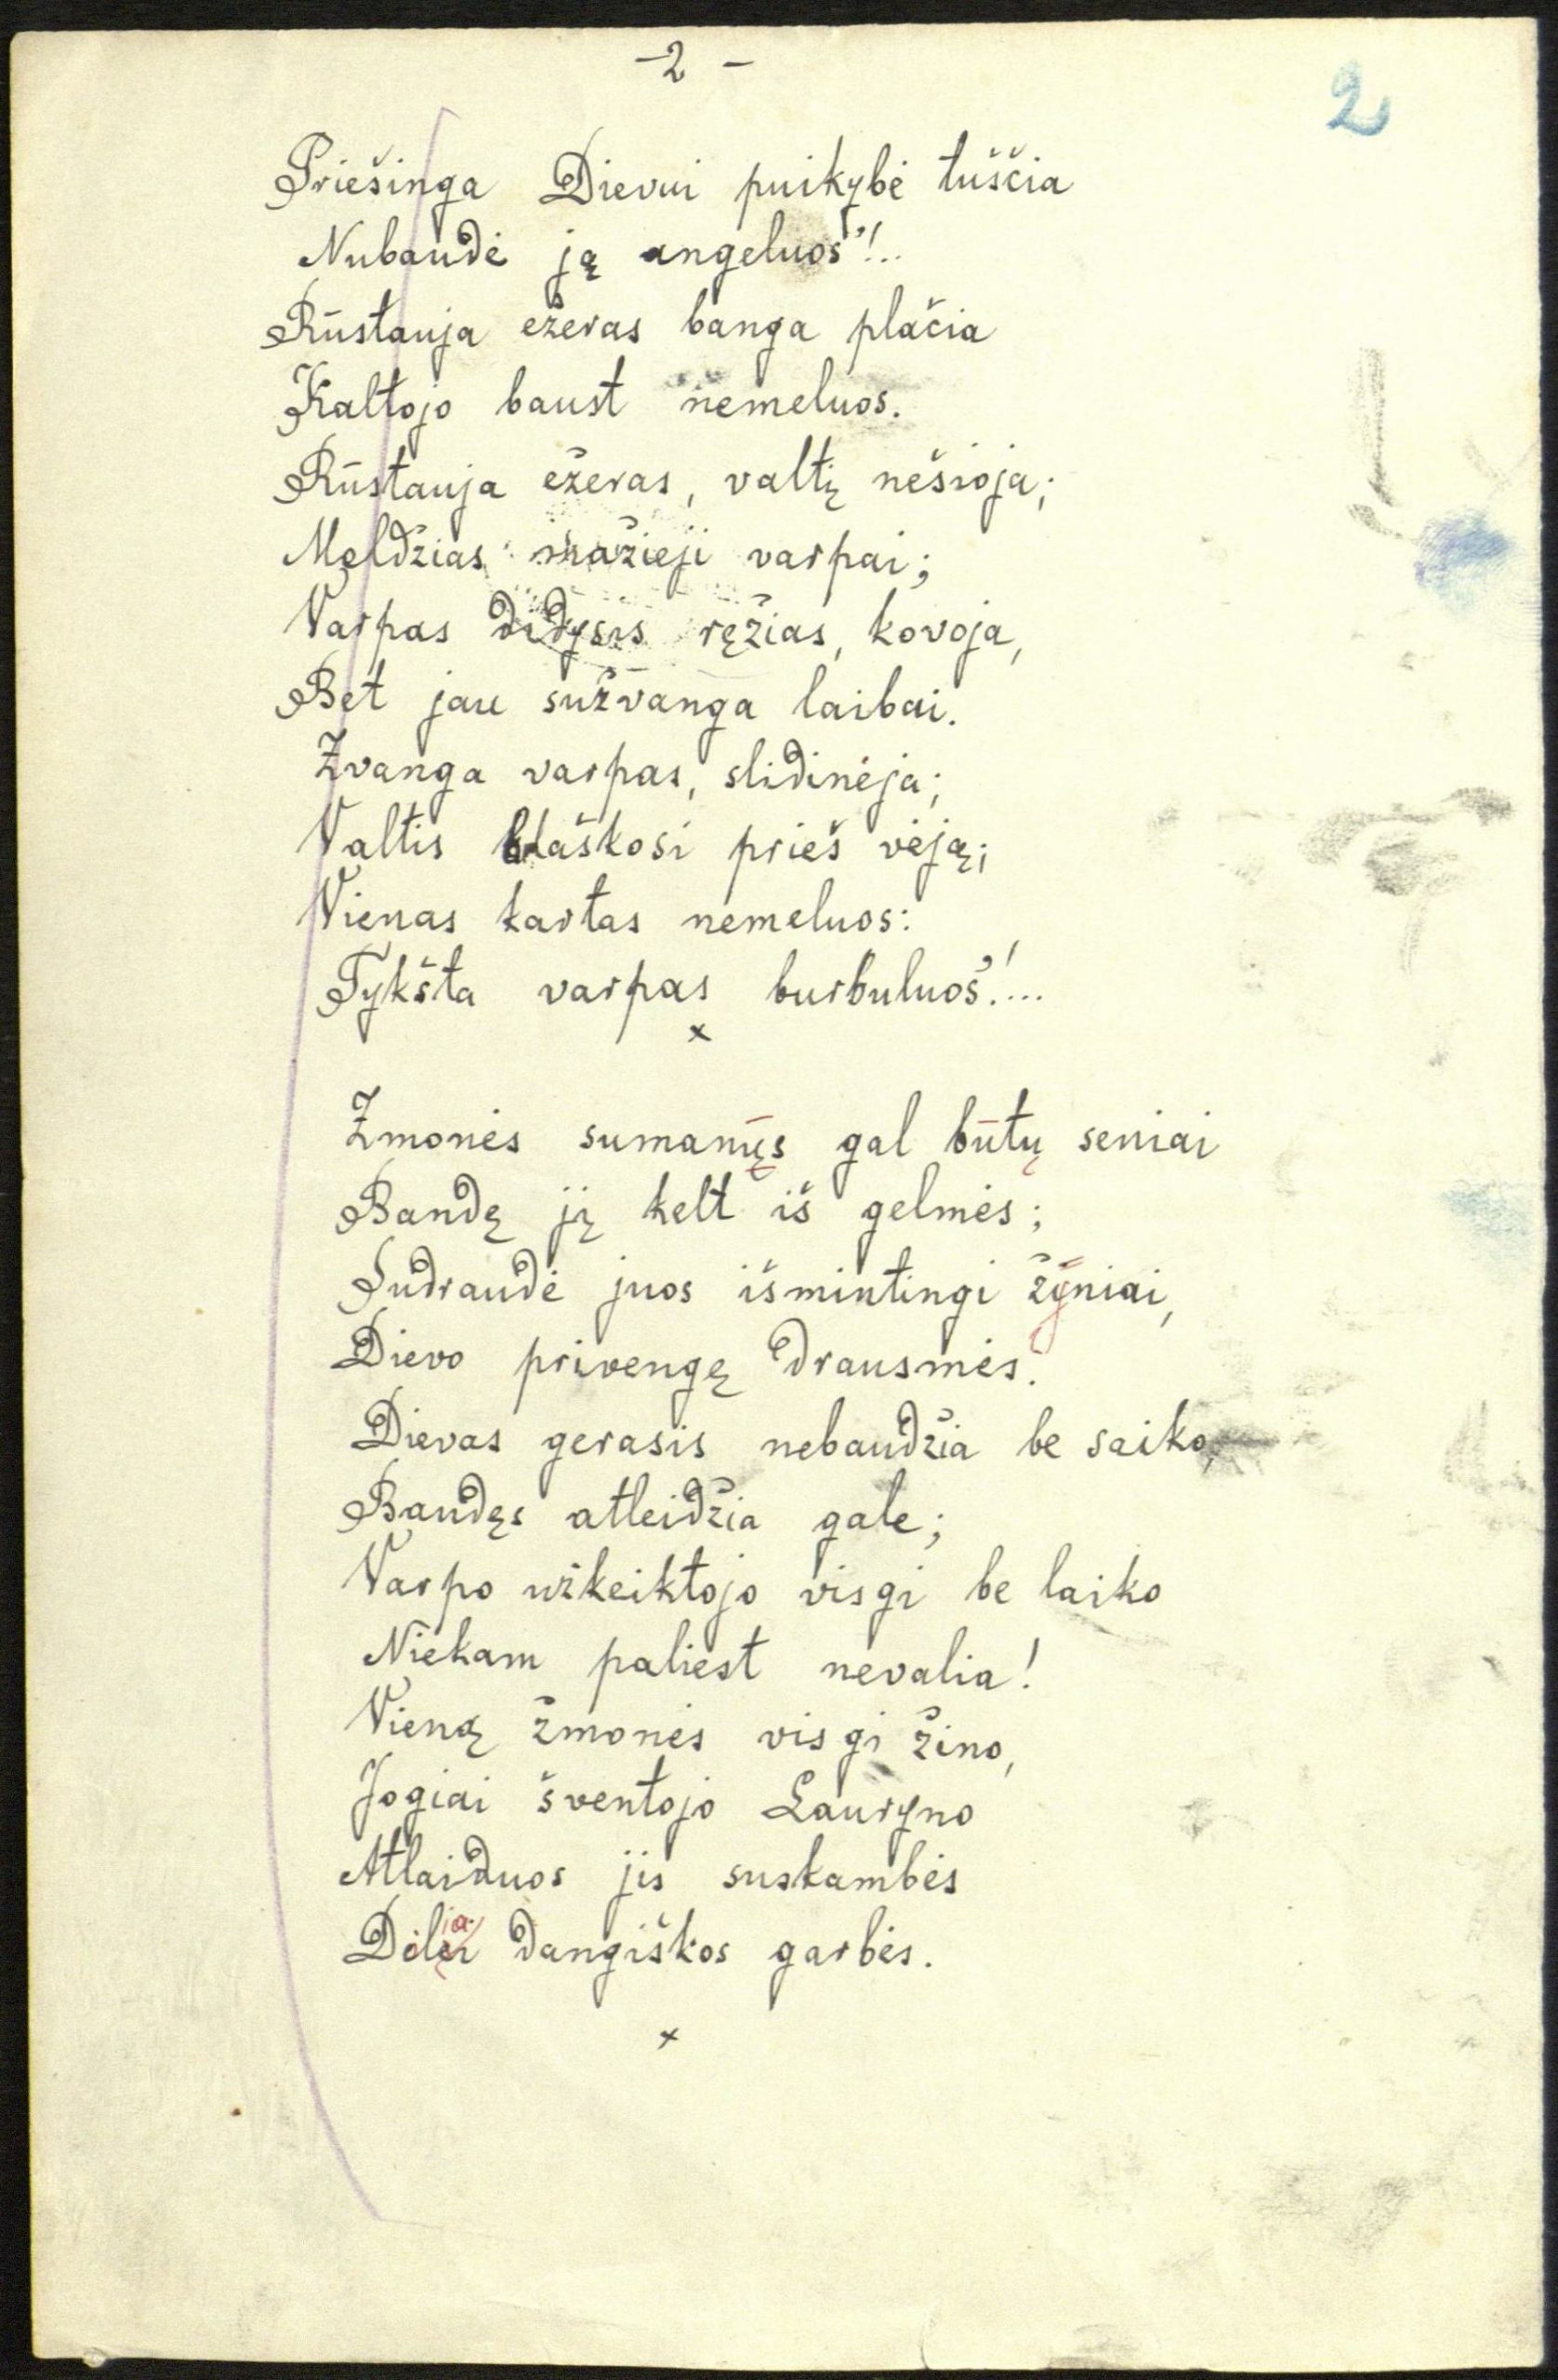 -2-
2
Priešinga Dievui puikybė tuščia
Nubaudė ją angeluos"!..
Rūstauja ežeras banga plačia
Kaltojo baust nemeluos.
Rūstauja ežeras, valtį nešioja;
Meldžias mažieji varpai;
Varpas didysis ręžias, kovoja,
Bet jau sužvanga laibai.
Žvanga varpas, slidinėja;
Valtis blaškosi prieš vėją;
Vienas kartas nemeluos:
Tykšta varpas burbuluos"!...
x
Žmonės sumanūs gal būtų seniai
Bandę jį kelt iš gelmės;
Sudraudė juos išmintingi žyniai,
Dievo privengę drausmės.
Dievas gerasis nebaudžia be saiko,
Baudęs atleidžia gale;
Varpo užkeiktojo visgi be laiko
Niekam paliest nevalia!
Vieną žmonės visgi žino,
Jogiai šventojo Lauryno
Atlaiduos jis suskambės
Dėliai dangiškos garbės.
x